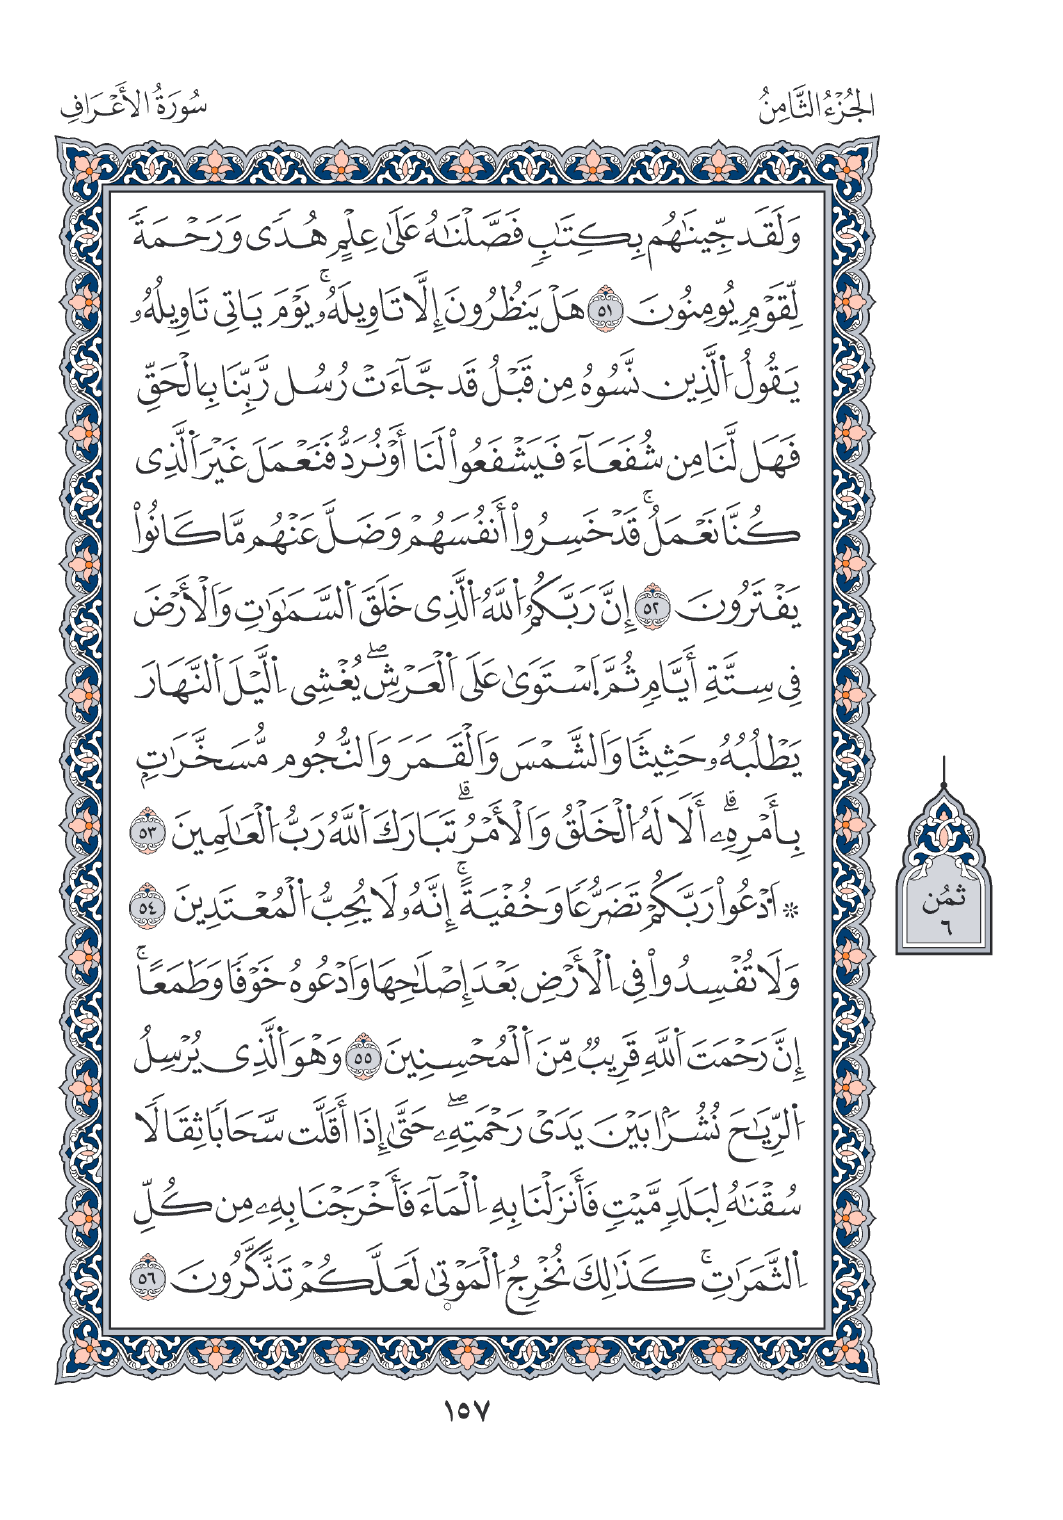 الجُزْءُ الثَّامِنُ
سُورَةُ الأَعْرَافِ
وَلَقَد جِّينَٰهُم بِكِتَٰبٖ فَصَّلْنَٰهُ عَلَىٰ عِلْمٍ هُدٗى وَرَحْمَةٗ
لِّقَوْمٖ يُومِنُونَ ٥١ هَلْ يَنظُرُونَ إِلَّا تَاوِيلَهُۥۚ يَوْمَ يَاتِى تَاوِيلُهُۥ
يَقُولُ اَ۬لَّذِين نَّسُوهُ مِن قَبْلُ قَد جَّآءَتْ رُسُل رَّبِّنَا بِالْحَقِّ
فَهَل لَّنَا مِن شُفَعَآءَ فَيَشْفَعُواْ لَنَا أَوْ نُرَدُّ فَنَعْمَلَ غَيْرَ اَ۬لَّذِى
كُنَّا نَعْمَلُۚ قَدْ خَسِرُواْ أَنفُسَهُمْ وَضَلَّ عَنْهُم مَّا كَانُواْ
يَفْتَرُونَ ٥٢ إِنَّ رَبَّكُمُ اُ۬للَّهُ اُ۬لَّذِى خَلَقَ اَ۬لسَّمَٰوَٰتِ وَالْأَرْضَ
فِى سِتَّةِ أَيَّامٖ ثُمَّ اَ۪سْتَوَىٰ عَلَى اَ۬لْعَرْشِۖ يُغْشِى اِ۬لَّيْلَ اَ۬لنَّهَارَ
يَطْلُبُهُۥ حَثِيثٗا وَالشَّمْسَ وَالْقَمَرَ وَالنُّجُوم مُّسَخَّرَٰتِۭ
بِأَمْرِهِۦۗ أَلَا لَهُ اُ۬لْخَلْقُ وَالْأَمْرُۗ تَبَارَكَ اَ۬للَّهُ رَبُّ اُ۬لْعَٰلَمِينَ ٥٣
۞ اَ۟دْعُواْ رَبَّكُمْ تَضَرُّعٗا وَخُفْيَةًۚ إِنَّهُۥ لَا يُحِبُّ اُ۬لْمُعْتَدِينَ ٥٤
وَلَا تُفْسِدُواْ فِى اِ۬لْأَرْضِ بَعْدَ إِصْلَٰحِهَا وَادْعُوهُ خَوْفٗا وَطَمَعًاۚ
إِنَّ رَحْمَتَ اَ۬للَّهِ قَرِيبٞ مِّنَ اَ۬لْمُحْسِنِينَ ٥٥ وَهْوَ اَ۬لَّذِى يُرْسِلُ
اُ۬لرِّيَٰحَ نُشُرَۢا بَيْنَ يَدَىْ رَحْمَتِهِۦۖ حَتَّىٰ إِذَا أَقَلَّت سَّحَابٗا ثِقَالٗا
سُقْنَٰهُ لِبَلَدٖ مَّيْتٖ فَأَنزَلْنَا بِهِ اِ۬لْمَآءَ فَأَخْرَجْنَا بِهِۦ مِن كُلِّ
اِ۬لثَّمَرَٰتِۚ كَذَٰلِكَ نُخْرِجُ اُ۬لْمَوْتىٰ لَعَلَّكُمْ تَذَّكَّرُونَ ٥٦
ثُمُن
٦
١٥٧